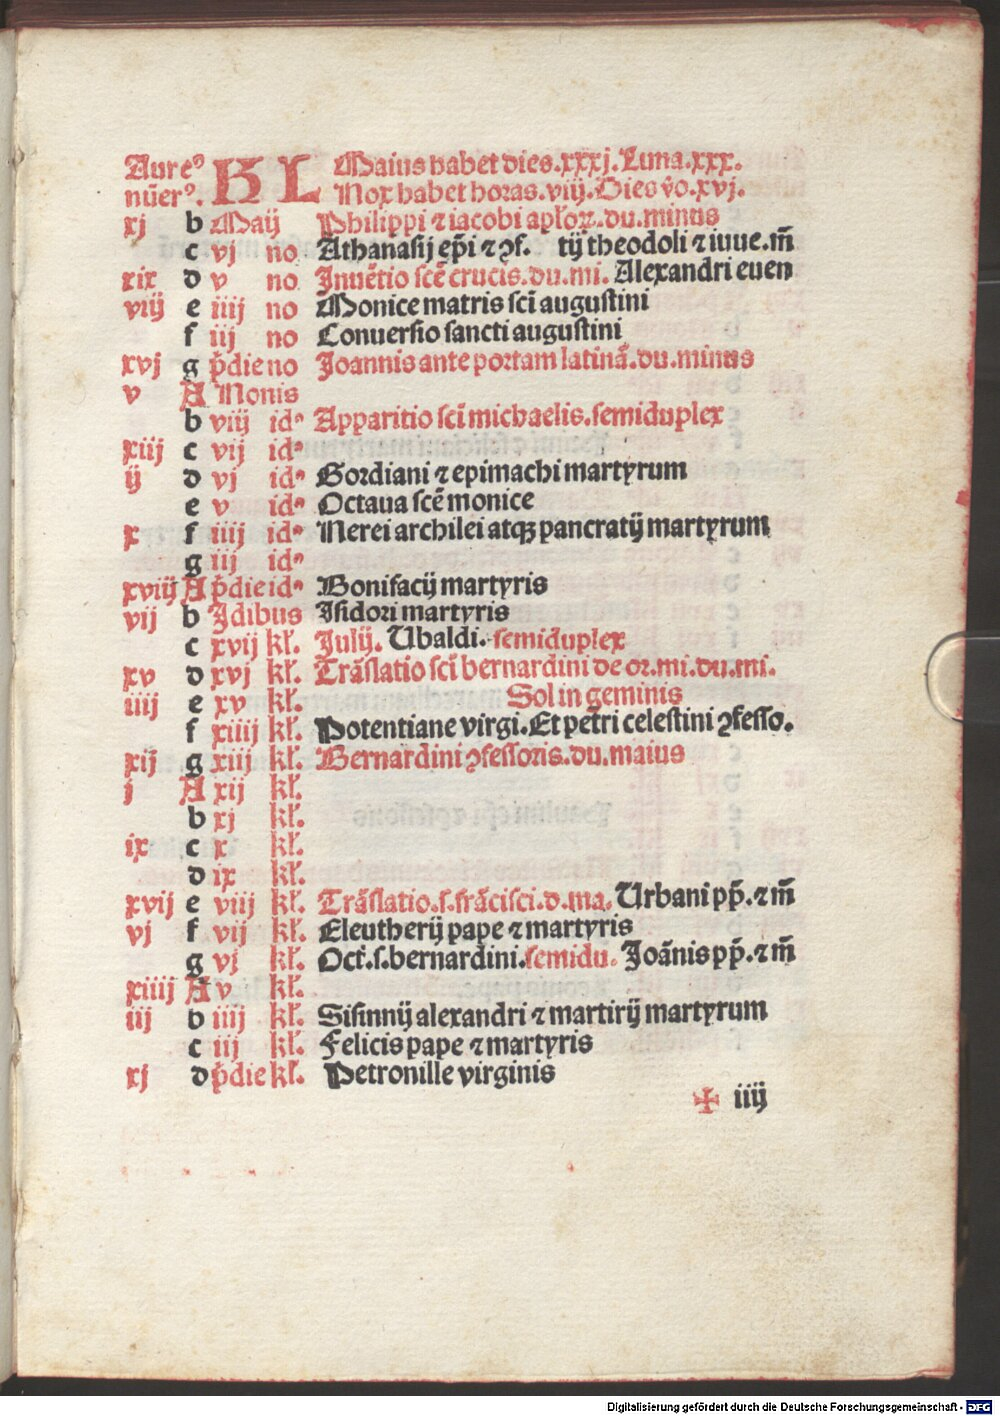 Aureꝰ KL Maius habet dies.xxxj.Luna.xxx.
nũerꝰ. Nox habet horas.viij.Dies v̊o.xvj.
xj b Maij Philippi ⁊ iacobi apľoꝝ.du.minus
c vj no Athanasij ep̃i ⁊ ꝯf. tij theodoli ⁊ iuue.m̃
xix d v no Inuẽtio scẽ crucis.du.mi. Alexandri euen
viij e iiij no Monice matris sc̃i augustini
f iij no Conuersio sancti augustini
xvj g p̃die no Joannis ante portam latinã.du.minus
v A Nonis
b viij idꝰ Apparitio sc̃i michaelis.semiduplex
xiij c vij idꝰ
ij d vj idꝰ Gordiani ⁊ epimachi martyrum
e v idꝰ Octaua scẽ monice
x f iiij idꝰ Nerei archilei atqꝫ pancratij martyrum
g iij idꝰ
xviij A p̃die idꝰ Bonifacij martyris
vij b Idibus Isidori martyris
c xvij kł. Julij. Ubaldi. semiduplex
xv d xvj kł. Trãslatio sc̃i bernardini de or.mi.du.mi.
iiij e xv kł. Sol in geminis
f xiiij kł. Potentiane virgi.Et pet̃ri celestini ꝯfesso.
xij g xiij kł. Bernardini ꝯfessoris.du.maius
j A xij kł.
b xj kł.
ix c x kł.
d ix kł.
xvij e viij kł. Trãslatio.s.frãcisci.d.ma. Urbani pp̃.⁊ m̃
vj f vij kł. Eleutherij pape ⁊ martyris
g vj kł. Oct̃.s.bernardini.semidu. Joãnis pp̃.⁊ m̃
xiiij A v kł.
iij b iiij kł. Sisinnij alexandri ⁊ martirij martyrum
c iij kł. Felicis pape ⁊ martyris
xj d p̃die kł. Petronille virginis
✠ iiij
Digitalisierung gefördert durch die Deutsche Forschungsgemeinschaft - DFG